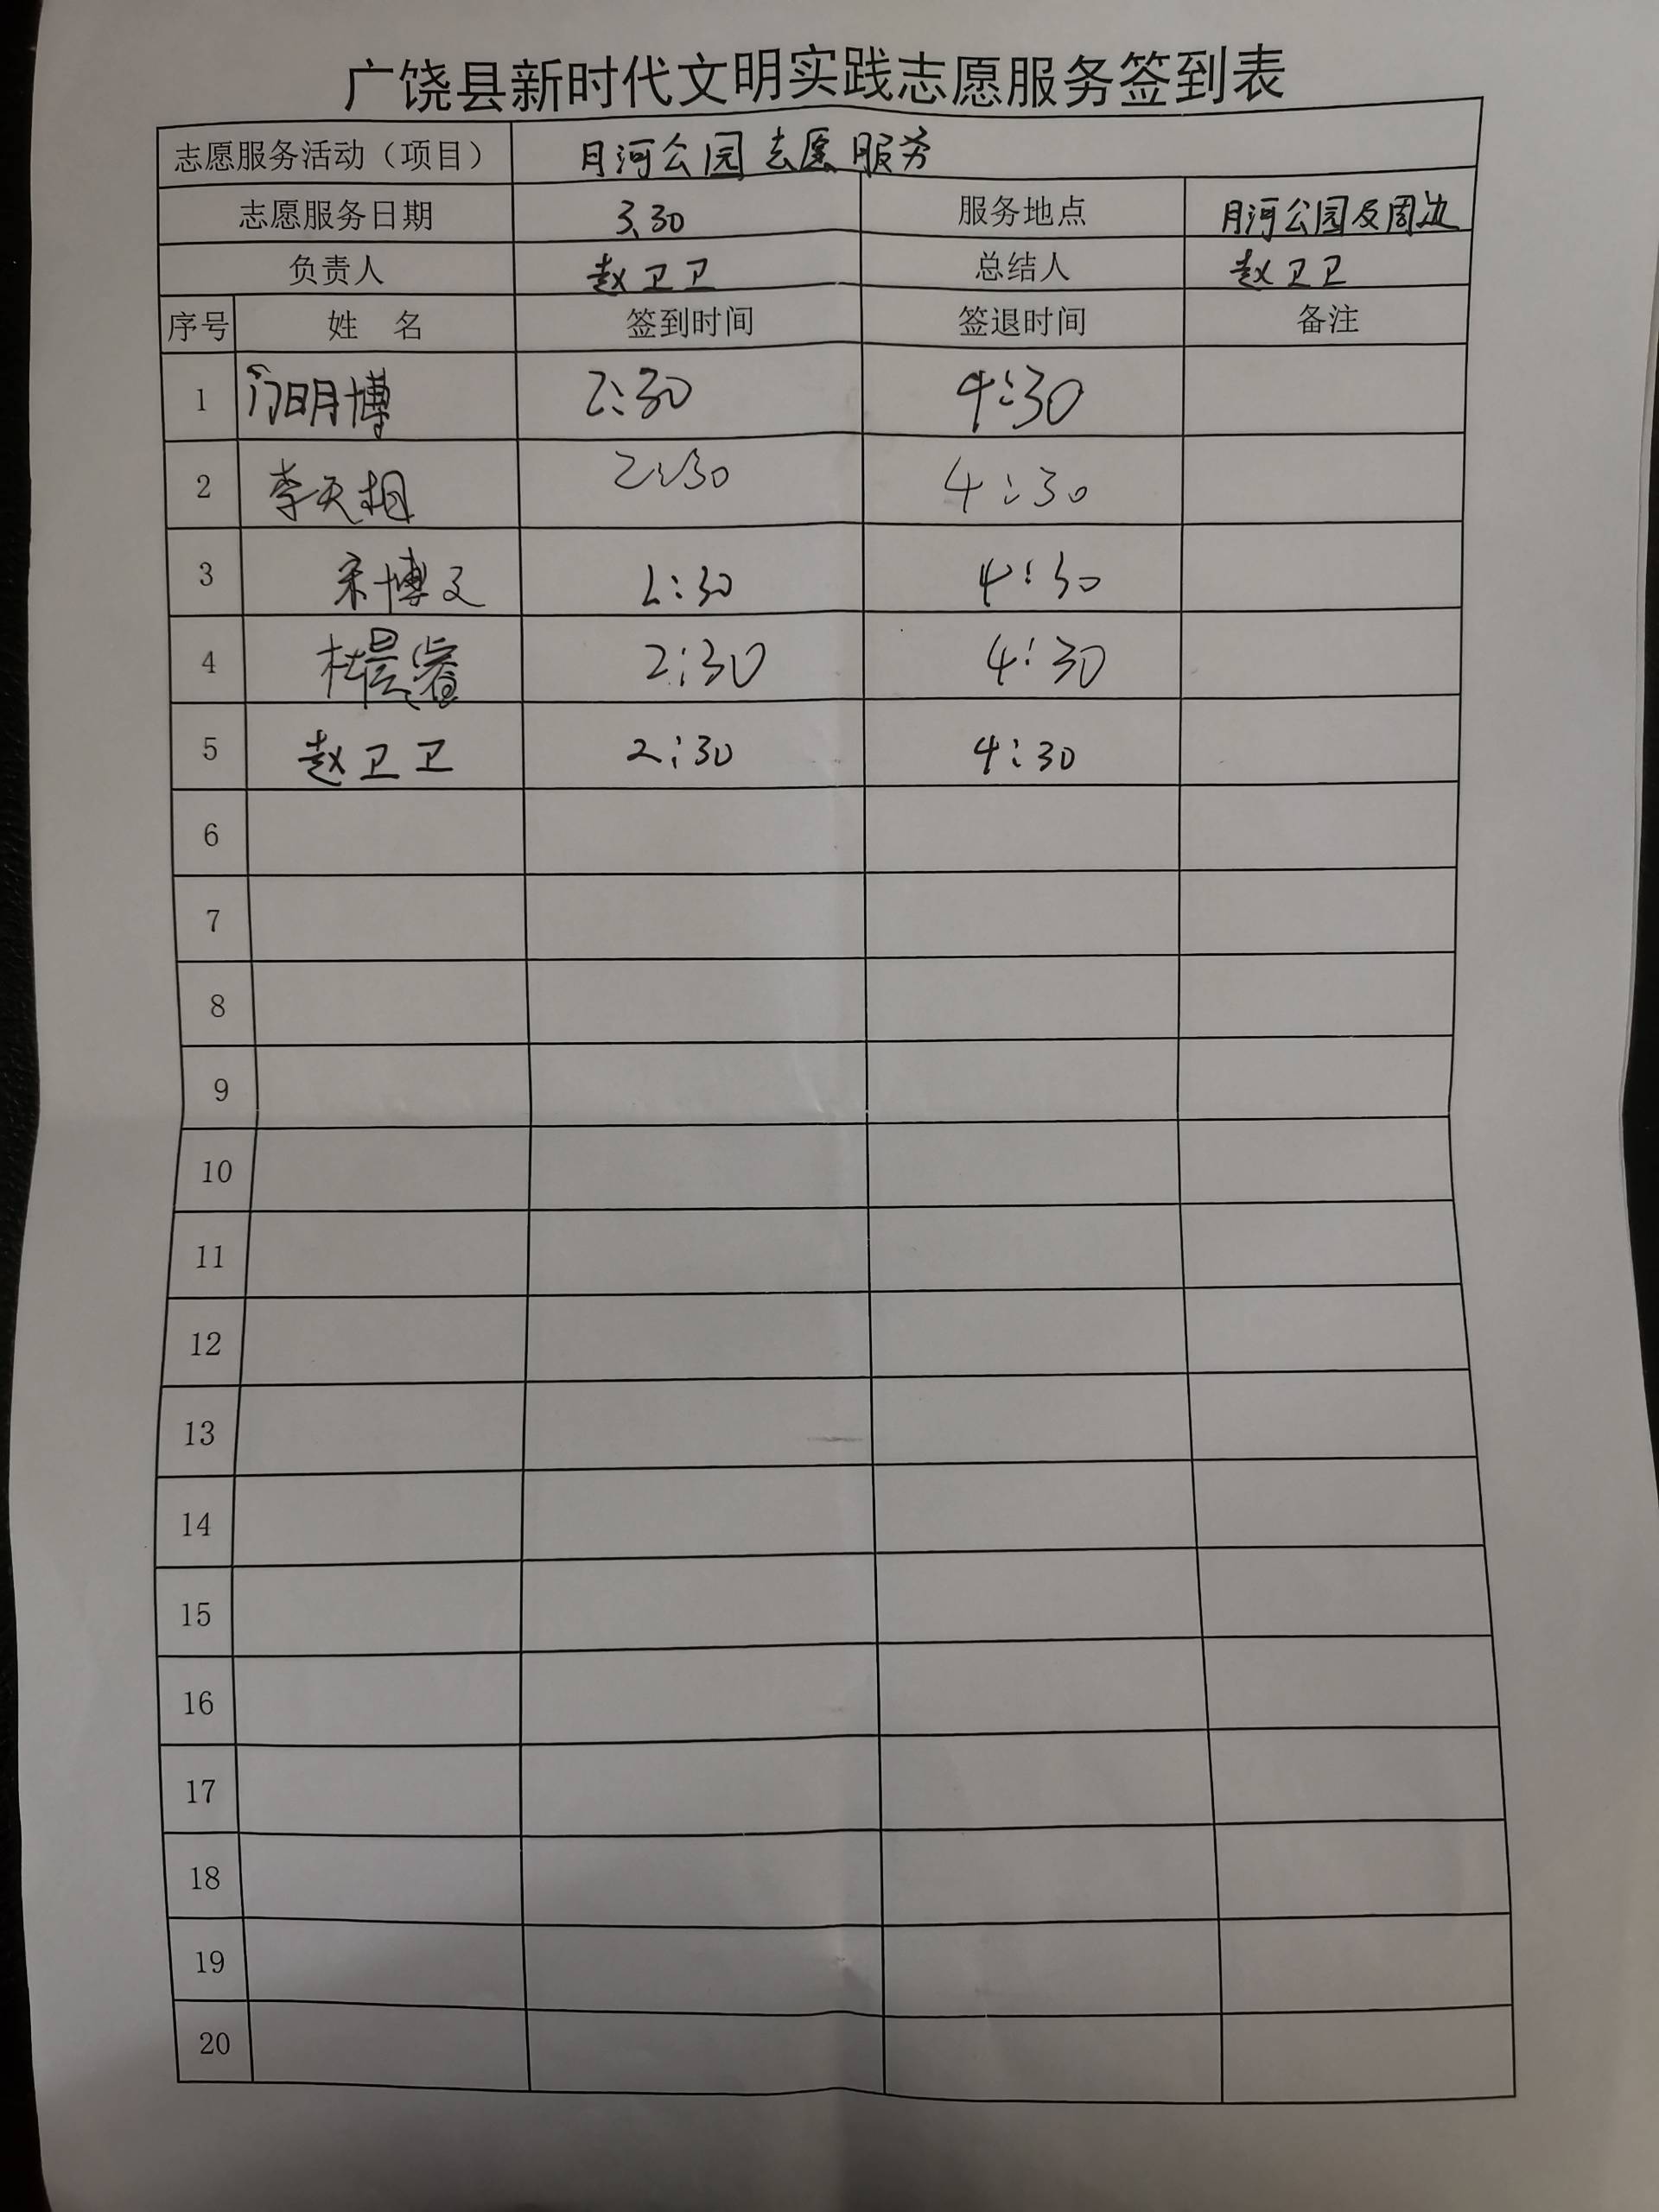 广饶县新时代文明实践志愿服务签到表
志愿服务活动（项目） 月河公园志愿服务
志愿服务日期 3.30 服务地点 月河公园及周边
负责人 赵卫卫 总结人 赵卫卫
序号 姓 名 签到时间 签退时间 备注
1 闫明博 2:30 4:30
2 李天相 2:30 4:30
3 宋博文 2:30 4:30
4 杜晨睿 2:30 4:30
5 赵卫卫 2:30 4:30
6
7
8
9
10
11
12
13
14
15
16
17
18
19
20